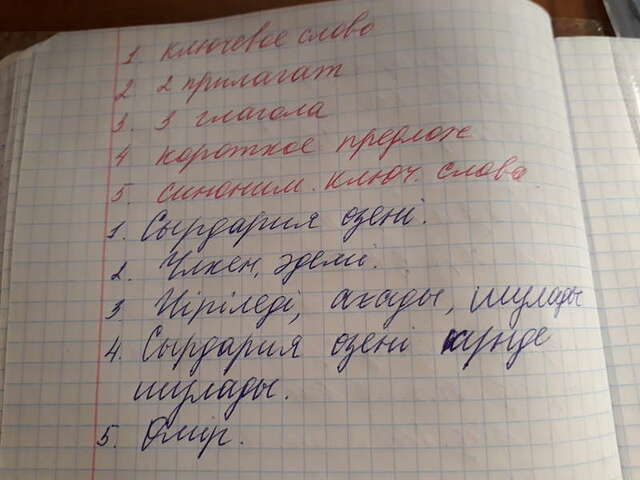 1 ключевое слово
2 2 прилагат
3. 3 глагола
4 короткое предлож
5. синоним. ключ. слова
1. Сырдария өзені.
2. Үлкен, әдемі.
3 Иіріледі, ағады, шулады
4. Сырдария өзені күнде
шулады.
5. Өмір.